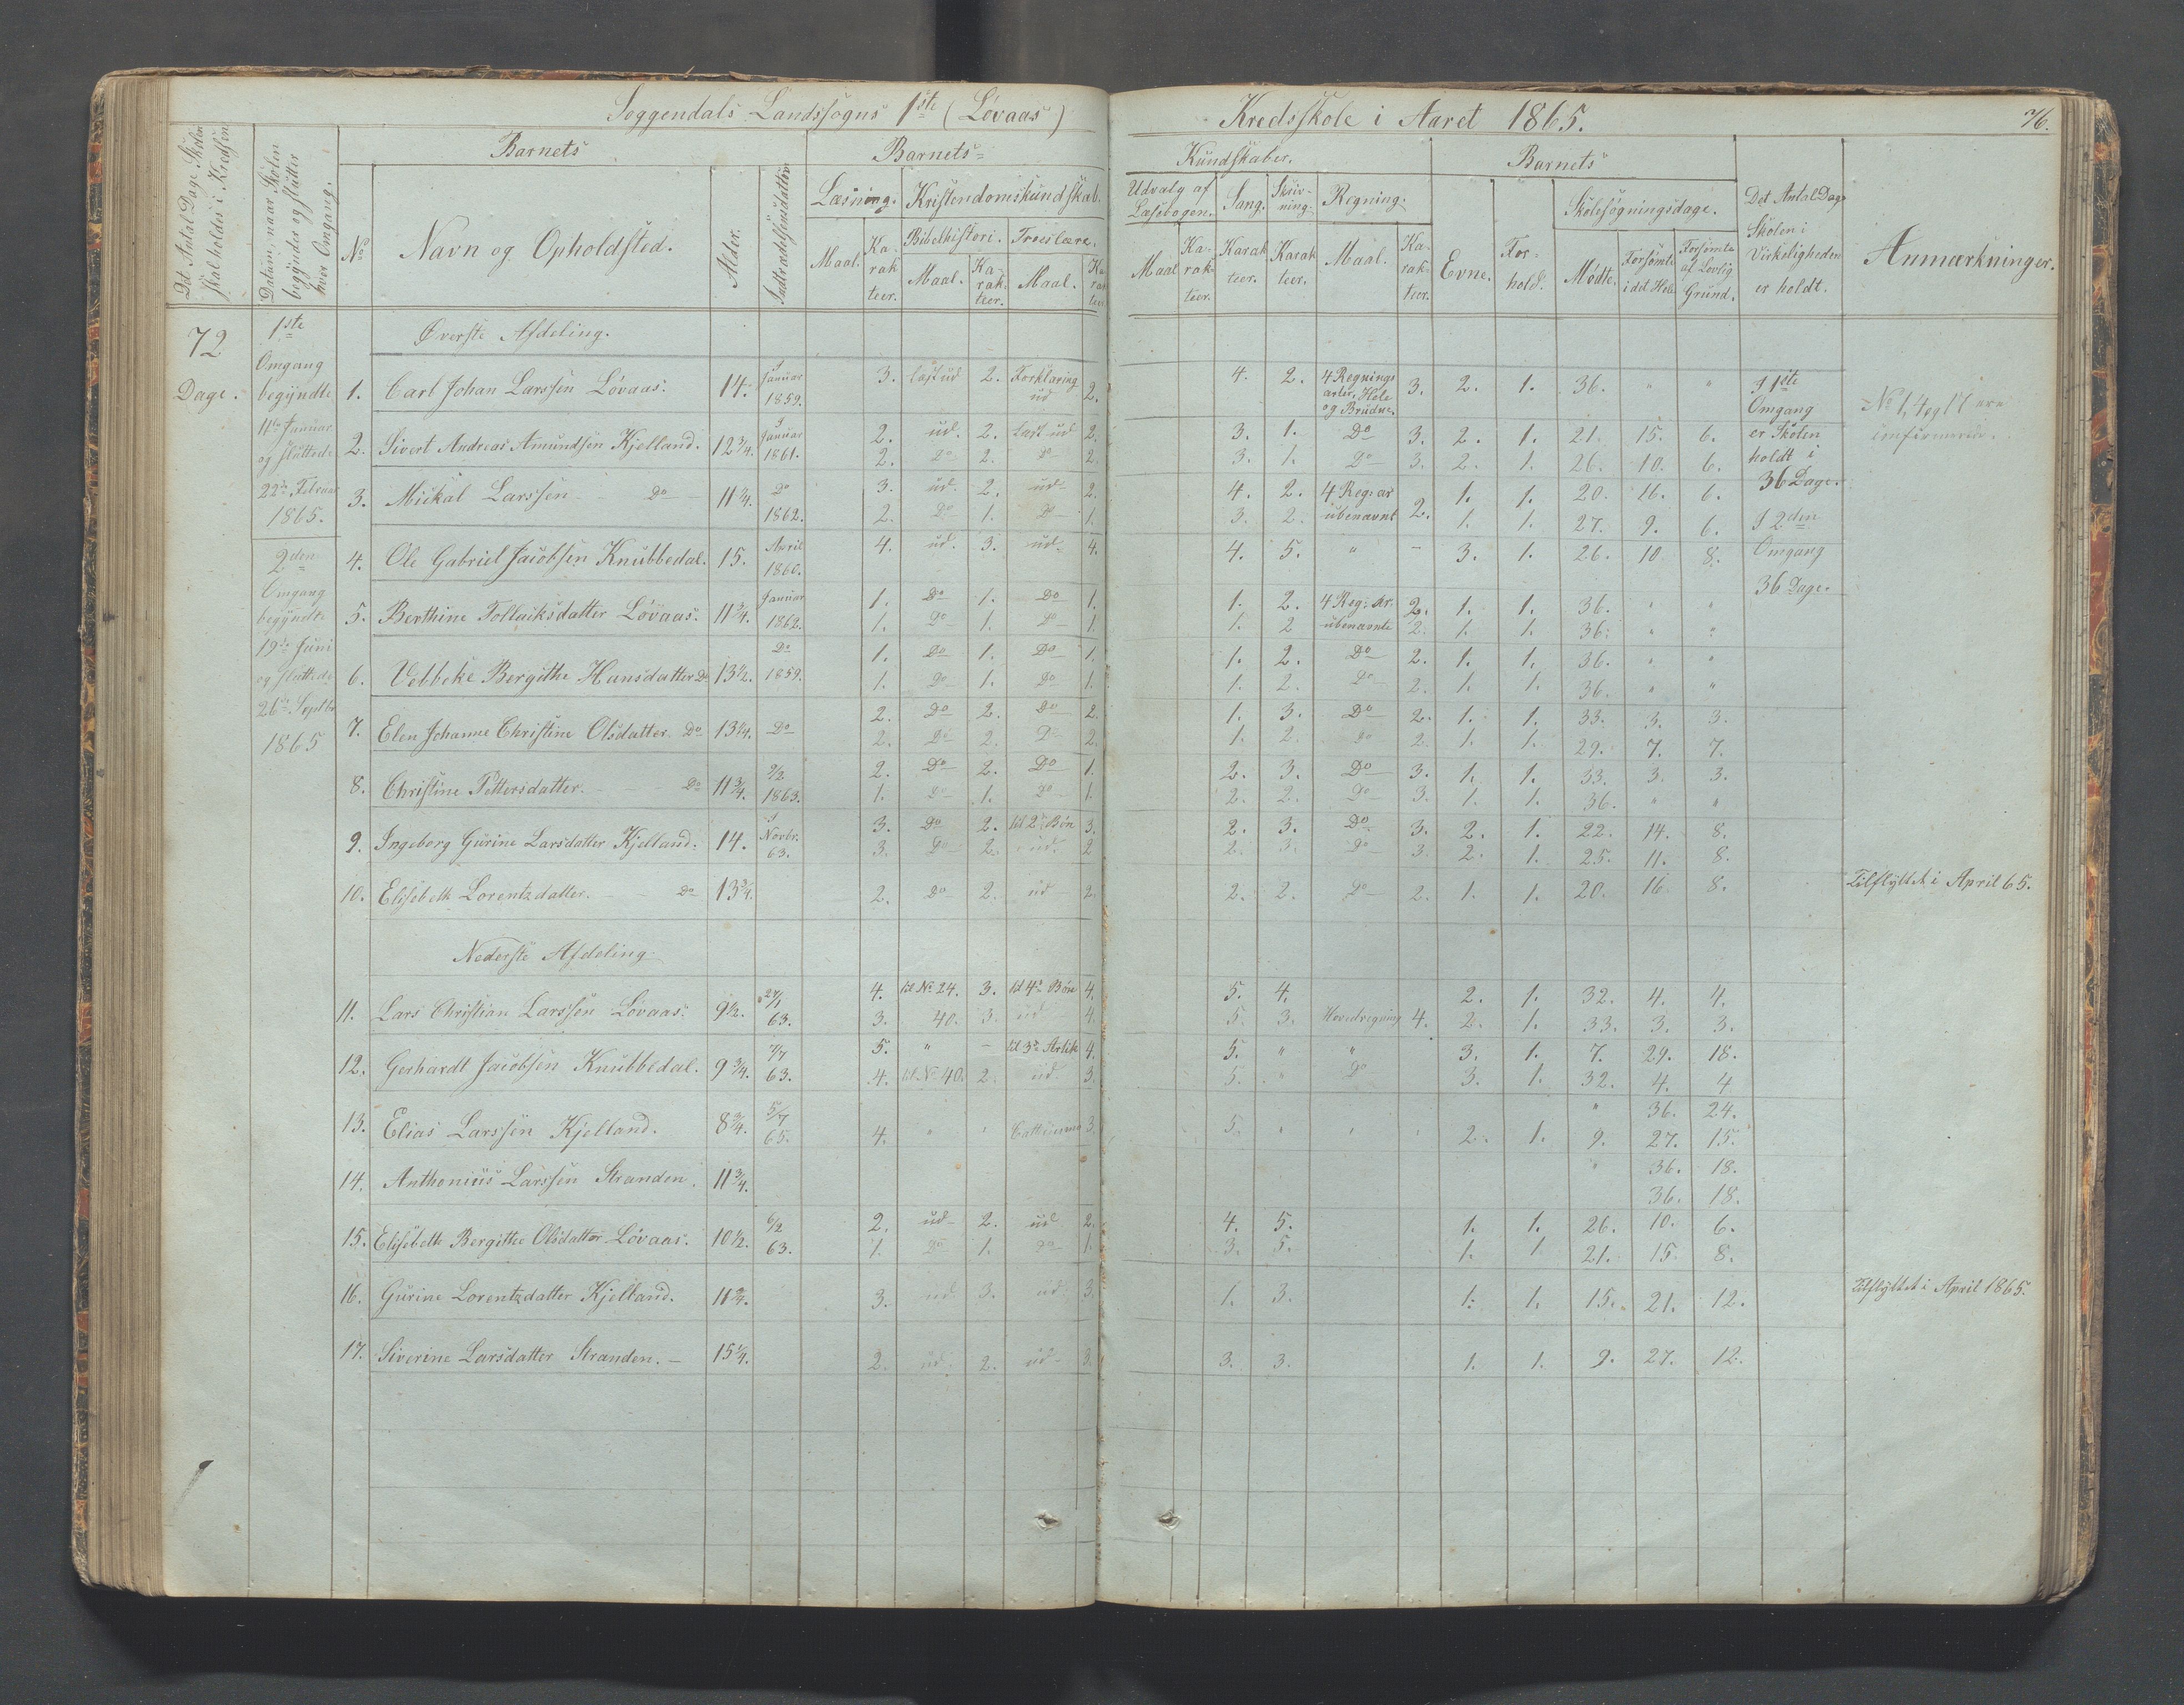 Soggendals Landssogns 1ste (Løvaas) Kredsskole i Aaret 1865. 76.
Det Antal Dage Skolen skal holdes i Kredsen
Datum, naar Skolen begyndes og slutter hver Omgang.
No
Barnets
Navn og Opholdssted.
Alder.
Indtrædelsesdatum
Barnets Kundskaber.
Læsning. Kristendomskundskab.
Bibelhistori. Troeslære.
Maal. Ka-rak-teer. Maal. Ka-rak-teer. Maal. Ka-rak-teer.
Udvalg af Læsebogen. Sang. Skriv-ning. Regning.
Maal Ka-rak-teer. Karak teer. Karak teer. Maal. Ka-rak-teer.
Barnets
Evne. For-hold. Skolesøgningsdage.
Mødte. Forsømte i det Hele Forsømte af Lovlig Grund.
Det Antal Dage Skolen i Virkeligheden er holdt.
Anmærkninger.
72 Dage.
1ste Omgang begyndte 11te Januar og sluttede 22de Februar 1865.
2den Omgang begyndte 19de Juni og sluttede 26de Septbr 1865
Øverste Afdeling.
1. Carl Johan Larssen Løvaas. 14. Januar 1859. 3. læst ud 2. Forklaring ud 2. 4. 2. 4 Regnings arter, Hele og Brudne. 3. 2. 1. 36. " "
2. Sivert Andreas Amundsen Kjelland. 12 3/4. Januar 1861. 2. ud. 2. læst ud 2. 3. 1. Do 3. 2. 1. 21. 15. 6.
2. Do 2. Do 2. 3. 1. Do 3. 2. 1. 26. 10. 6.
3. Mickal Larssen Do 11 3/4. Do 1862. 3. ud. 2. ud 2. 4. 2. 4 Reg: ar ubenævnt 2. 1. 1. 20. 16. 6.
2. Do 1. Do 1. 3. 2. 1. 1. 27. 9. 6.
4. Ole Gabriel Jacobsen Knubbedal. 15. April 1860. 4. ud. 3. ud. 4. 4. 5. " - 3. 1. 26. 10 8.
5. Berthine Tollacksdatter Løvaas. 11 3/4. Januar 1862. 1. Do 1. Do 1. 1. 2. 4 Reg: Ar. ubenævnte 2. 1. 1. 36. " "
1. Do 1. Do 1. 1. 2 2. 1. 1. 36. " "
6. Velbeke Bergithe Hansdatter Do 13 1/2. Do 1859. 1. Do 1. Do 1. 1. 2. Do 2. 1. 1. 36. " "
1. Do 1. Do 1. 1. 2. Do 2. 1. 1. 36. " "
7. Elen Johanne Christine Olsdatter. Do 13 1/4. Do 2. Do 2. Do 2. 1. 3. Do 2. 1. 1. 33. 3. 3.
2. Do 2. Do 2. 1. 2. Do 2. 1. 1. 29. 7. 7.
8. Christine Pettersdatter. Do 11 3/4. 9/2 1863. 2. Do 2. Do 1. 2. 3. Do 3. 1. 1. 33. 3. 3.
1. Do 1. Do 1. 2. 2. Do 3. 1. 1. 36. " "
9. Ingeborg Gurine Larsdatter Kjelland. 14. Novbr. 63. 3. Do 2. til 2den Bøn 3. 2. 3. Do 3. 2. 1. 22. 14. 8.
3. Do 2. ud. 2 2. 3. Do 3. 2. 1. 25. 11. 8.
10. Elisebeth Lorentzdatter. Do 13 3/4. 2. Do 2. ud 2. 2. 2. Do 2. 1. 1. 20. 16 8. Tilflyttet i April 65.
Nederste Afdeling
11. Lars Christian Larssen Løvaas. 9 1/2. 27/1 63. 4. til No 24. 3. til 4de Bøn 4. 5. 4. 2. 1. 32. 4. 4.
3. 40. 3. ud 4. 5. 3. Hovedregning 4. 2. 1. 33. 3. 3.
12. Gerhardt Jacobsen Knubbedal. 9 3/4. 7/7 63. 5. " - til 3de Artik 4. 5. " " 3. 1. 7. 29. 18.
4. til No 40. 2. ud. 3. 5. " Do 3. 1. 32. 4. 4
13. Elias Larssen Kjelland. 8 3/4. 5/7 65. " 36. 24.
4. " " 3. 5. " " " 2. 1. 9. 27. 15.
14. Anthonius Larssen Stranden. 11 3/4. " 36. 18.
36. 18.
15. Elisebeth Bergithe Olsdatter Løvaas. 10 1/2. 6/2 63. 2. ud 2. ud 2. 4. 5. 1. 1. 26. 10. 6.
1. Do 1. Do 1. 3. 5. 1. 1 21. 15. 8.
16. Gurine Lorentzdatter Kjelland. 11 3/4. 3. ud 3. ud. 3. 1. 3. 1. 1. 15. 21. 12. Tilflyttet i April 1865.
17. Siverine Larsdatter Stranden. 15 1/4. 2. ud. 2. ud. 3. 3. 3. 1. 1. 9. 27. 12.
I 1ste Omgang er Skolen holdt i 36 Dage.
I 2den Omgang 36 Dage.
No 1, 4 og 17 ere confirmerede.